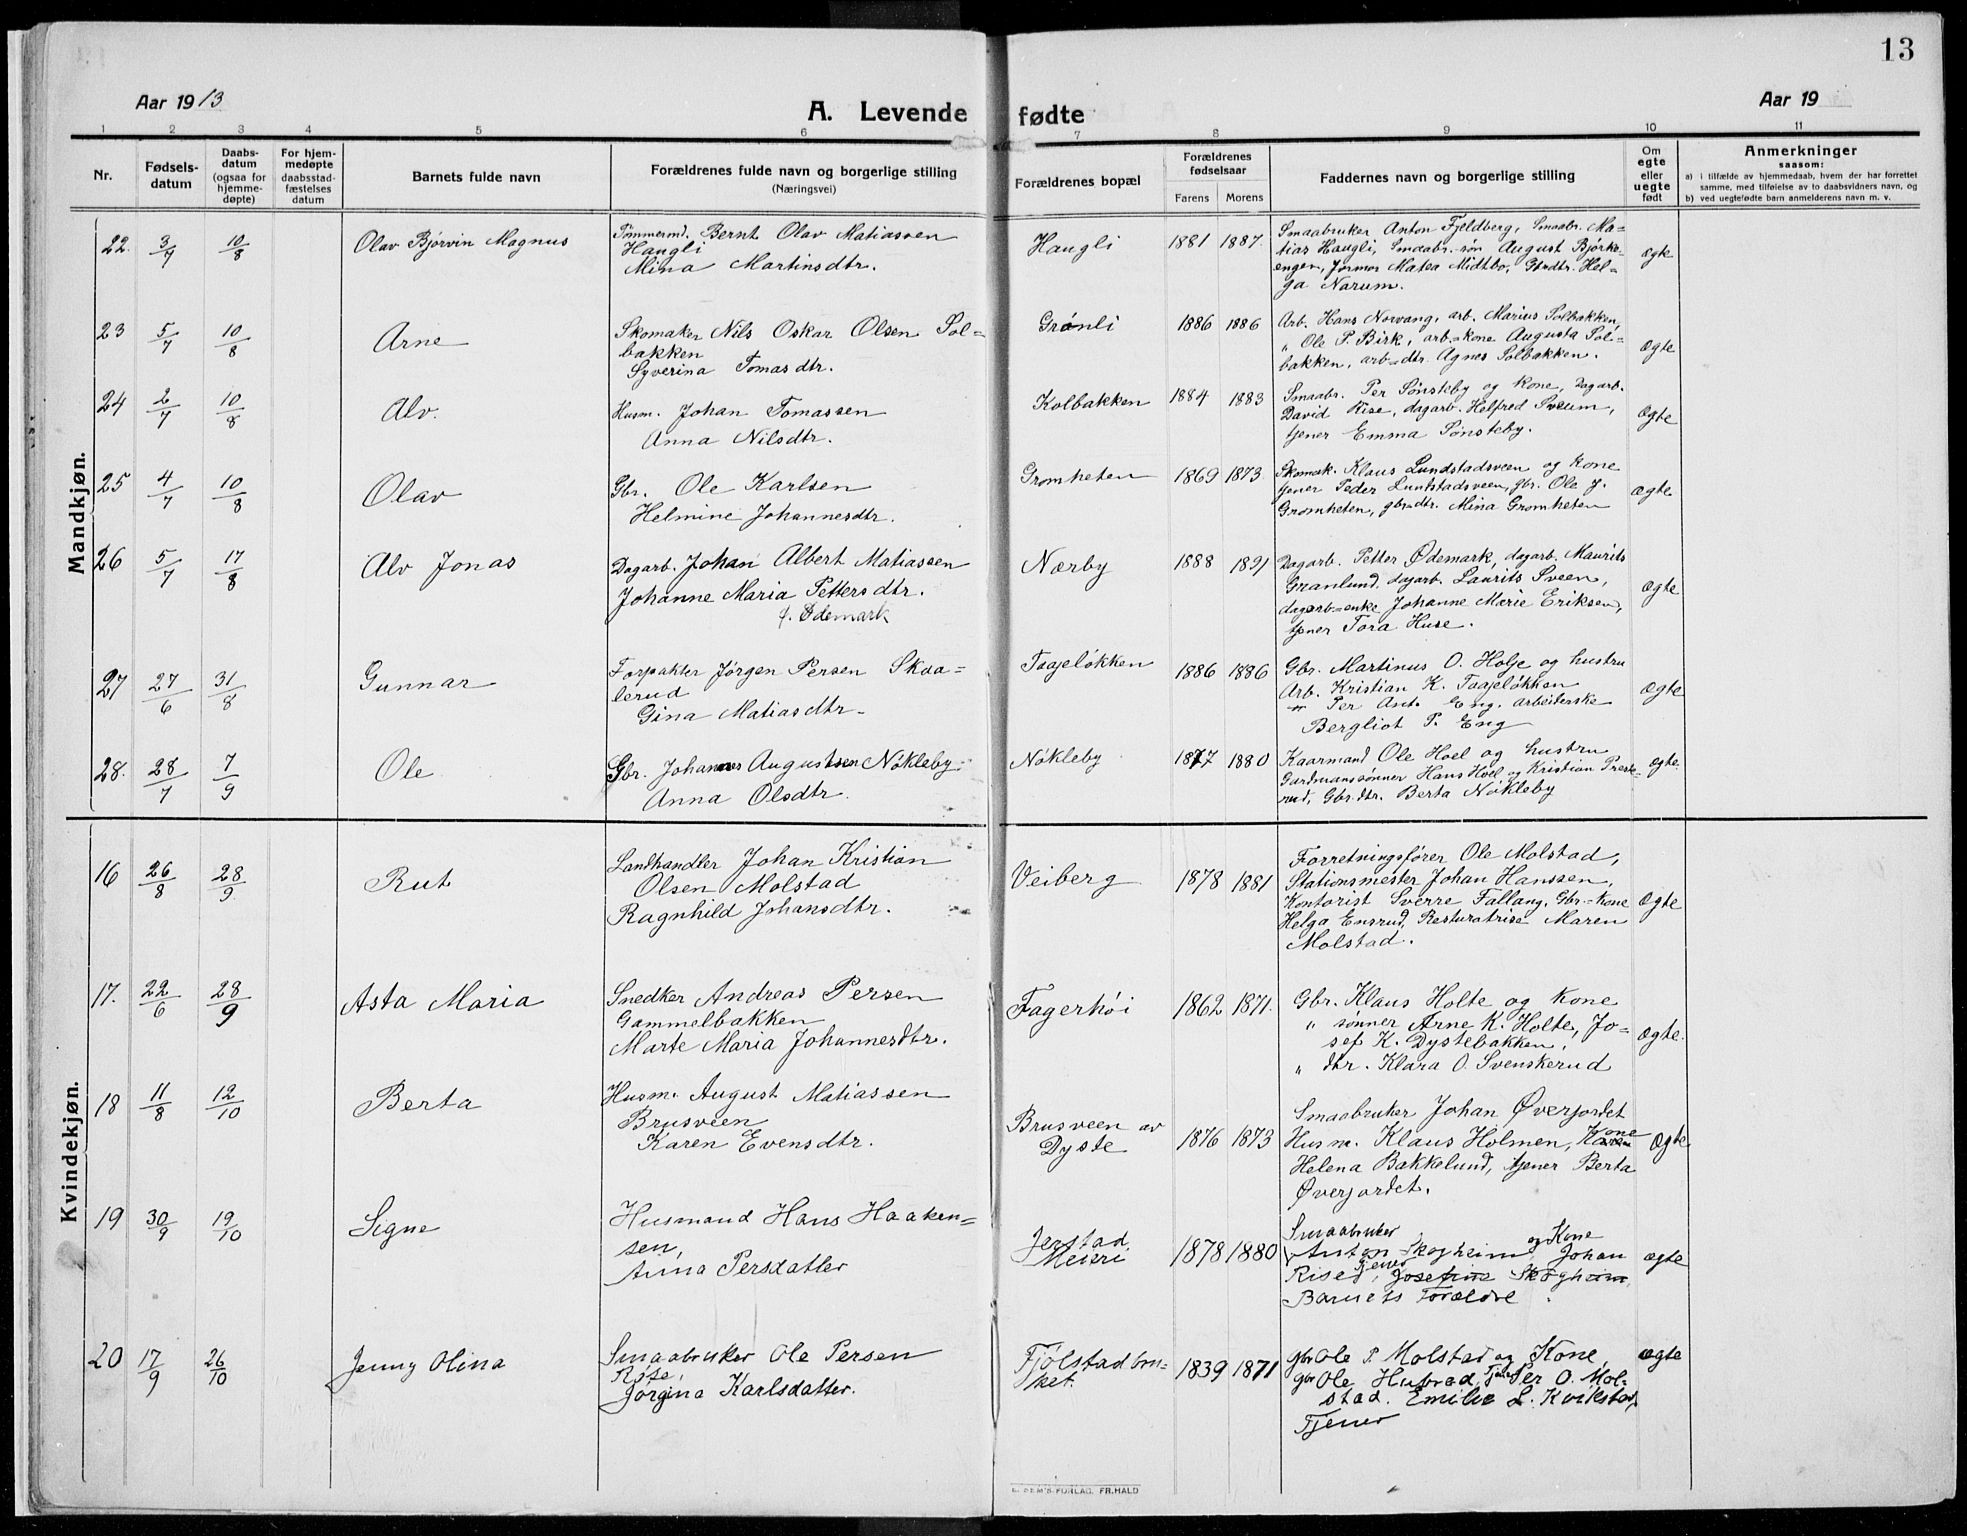 13
Aar 1913
A. Levende fødte
Aar 19
1 2 3 4 5 6 7 8 9 10 11
Nr.
Fødsels-
datum
Daabs-
datum
(ogsaa for
hjemme-
døpte)
For hjem-
medøpte
daabsstad-
fæstelses
datum
Barnets fulde navn
Forældrenes fulde navn og borgerlige stilling
(Næringsvei)
Forældrenes bopæl
Forældrenes
fødselsaar
Farens Morens
Faddernes navn og borgerlige stilling
Om
egte
eller
uegte
født
Anmerkninger
saasom:
a) i tilfælde av hjemmedaab, hvem der har forrettet
samme, med tilføielse av to daabsvidners navn, og
b) ved uegtefødte barn anmelderens navn m. v.
Mandkjøn.
22. 3/7 10/8 Olav Bjørvin Magnus
Tømmermd. Bernt Olav Matiassen
Haugli
Mina Martinsdtr.
Haugli 1881 1887.
Smaabruker Anton Fjeldberg, Smaabr. Ma-
tias Haugli, Smaabr.-søn August Bjørke-
engen, Jormor Matea Midtbo, Gbrdtr. Hel-
ga Narum.
ægte
23 5/7 10/8 Arne
Skomaker Nils Oskar Olsen Sol=
bakken
Syverina Tomasdtr.
Grønli 1886 1886
Arb. Hans Norvang, arb. Marius Solbakken,
" Ole P. Birk, arb=kone Augusta Sol=
bakken, arb=dtr. Agnes Solbakken.
Ægte
24 2/7 10/8 Alv.
Husm. Johan Tomassen
Anna Nilsdtr.
Kolbakken 1884 1883
Smaabr. Per Sønsteby og kone, Dagarb.
David Rise, dagarb. Helfred Sveum,
tjener Emma Sønsteby.
Ægte
25 4/7 10/8 Olav
Gbr. Ole Karlsen
Helmine Johannesdtr.
Gromheten 1869 1873
Skomak. Klaus Lundstadsveen og kone
tjener Peder Lundstadsveen, gbr. Ole J.
Gromheten, gbr=dtr. Mina Gromheten
Ægte
26 5/7 17/8 Alv Jonas
Dagarb. Johan Albert Matiassen
Johanne Maria Pettersdtr.
f. Ødemark
Nærby 1888 1891
Dagarb. Petter Ødemark, dagarb. Maurits
Granlund, dagarb. Laurits Sveen,
dagarb=enke Johanne Marie Eriksen,
tjener Tora Huse.
Ægte
27 27/6 31/8 Gunnar
Forpakter Jørgen Persen Skaa=
lerud
Gina Matiasdtr.
Taajeløkken 1886 1886
Gbr. Martinus O. Holje og hustru
Arb. Kristian K. Taajeløkken
" Per Ant. Eng. arbeiderske
Bergliot P. Eng
Ægte
28. 28/7 7/9 Ole
Gbr. Johannes Augustsen Nøkleby
Anna Olsdtr.
Nøkleby 1877 1880
Kaarmand Ole Hoel og hustru
Gardmanssønner Hans Hoel og Kristian Preste-
rud, Gbr.dtr. Berta Nøkleby
Ægte.
Kvindekjøn.
16 26/8 28/9 Rut
Landhandler Johan Kristian
Olsen Molstad
Ragnhild Johansdtr.
Veiberg 1878 1881
Forretningsfører Ole Molstad,
Stationsmester Johan Hanssen,
Kontorist Sverre Fallang, Gbr.-kone
Helga Ensrud, Resturatrise Maren
Molstad.
Ægte
17. 22/6 28/9 Asta Maria
Snedker Andreas Persen
Gammelbakken
Marte Maria Johannesdtr.
Fagerhøi 1862 1871.
Gbr. Klaus Holte og kone
" sønner Arne K. Holte, Jo=
sef K. Dystebakken,
" dtr. Klara O. Svenskerud
Ægte.
18 11/8 12/10 Berta
Husm. August Matiassen
Brusveen
Karen Evensdtr.
Brusveen av
Dyste
1876 1873
Smaabruker Johan Øverjordet
Husm. Klaus Holmen, kone
Helena Bakkelund, tjener Berta
Øverjordet.
Ægte
19 30/9 19/10 Signe
Husmand Hans Haaken=
sen,
Anna Persdatter
Jerstad
Meieri
1878 1880
Smaabruker
Anton Skogheim og Kone Johan
Rise, Tjener Josefine Skogheim,
Barnets Forældre.
ægte
20 17/9 26/10 Jenny Olina
Smaabruker Ole Persen
Røise,
Jørgina Karlsdatter.
Fjølstadbru-
ket.
1839 1871
gbr Ole P. Molstad og Kone,
gbr Ole Hubred, Tjener Per O. Mol=
stad. Emilie L. Kvikstad,
Tjener
ægte
E. SEM'S FORLAG, FR.HALD